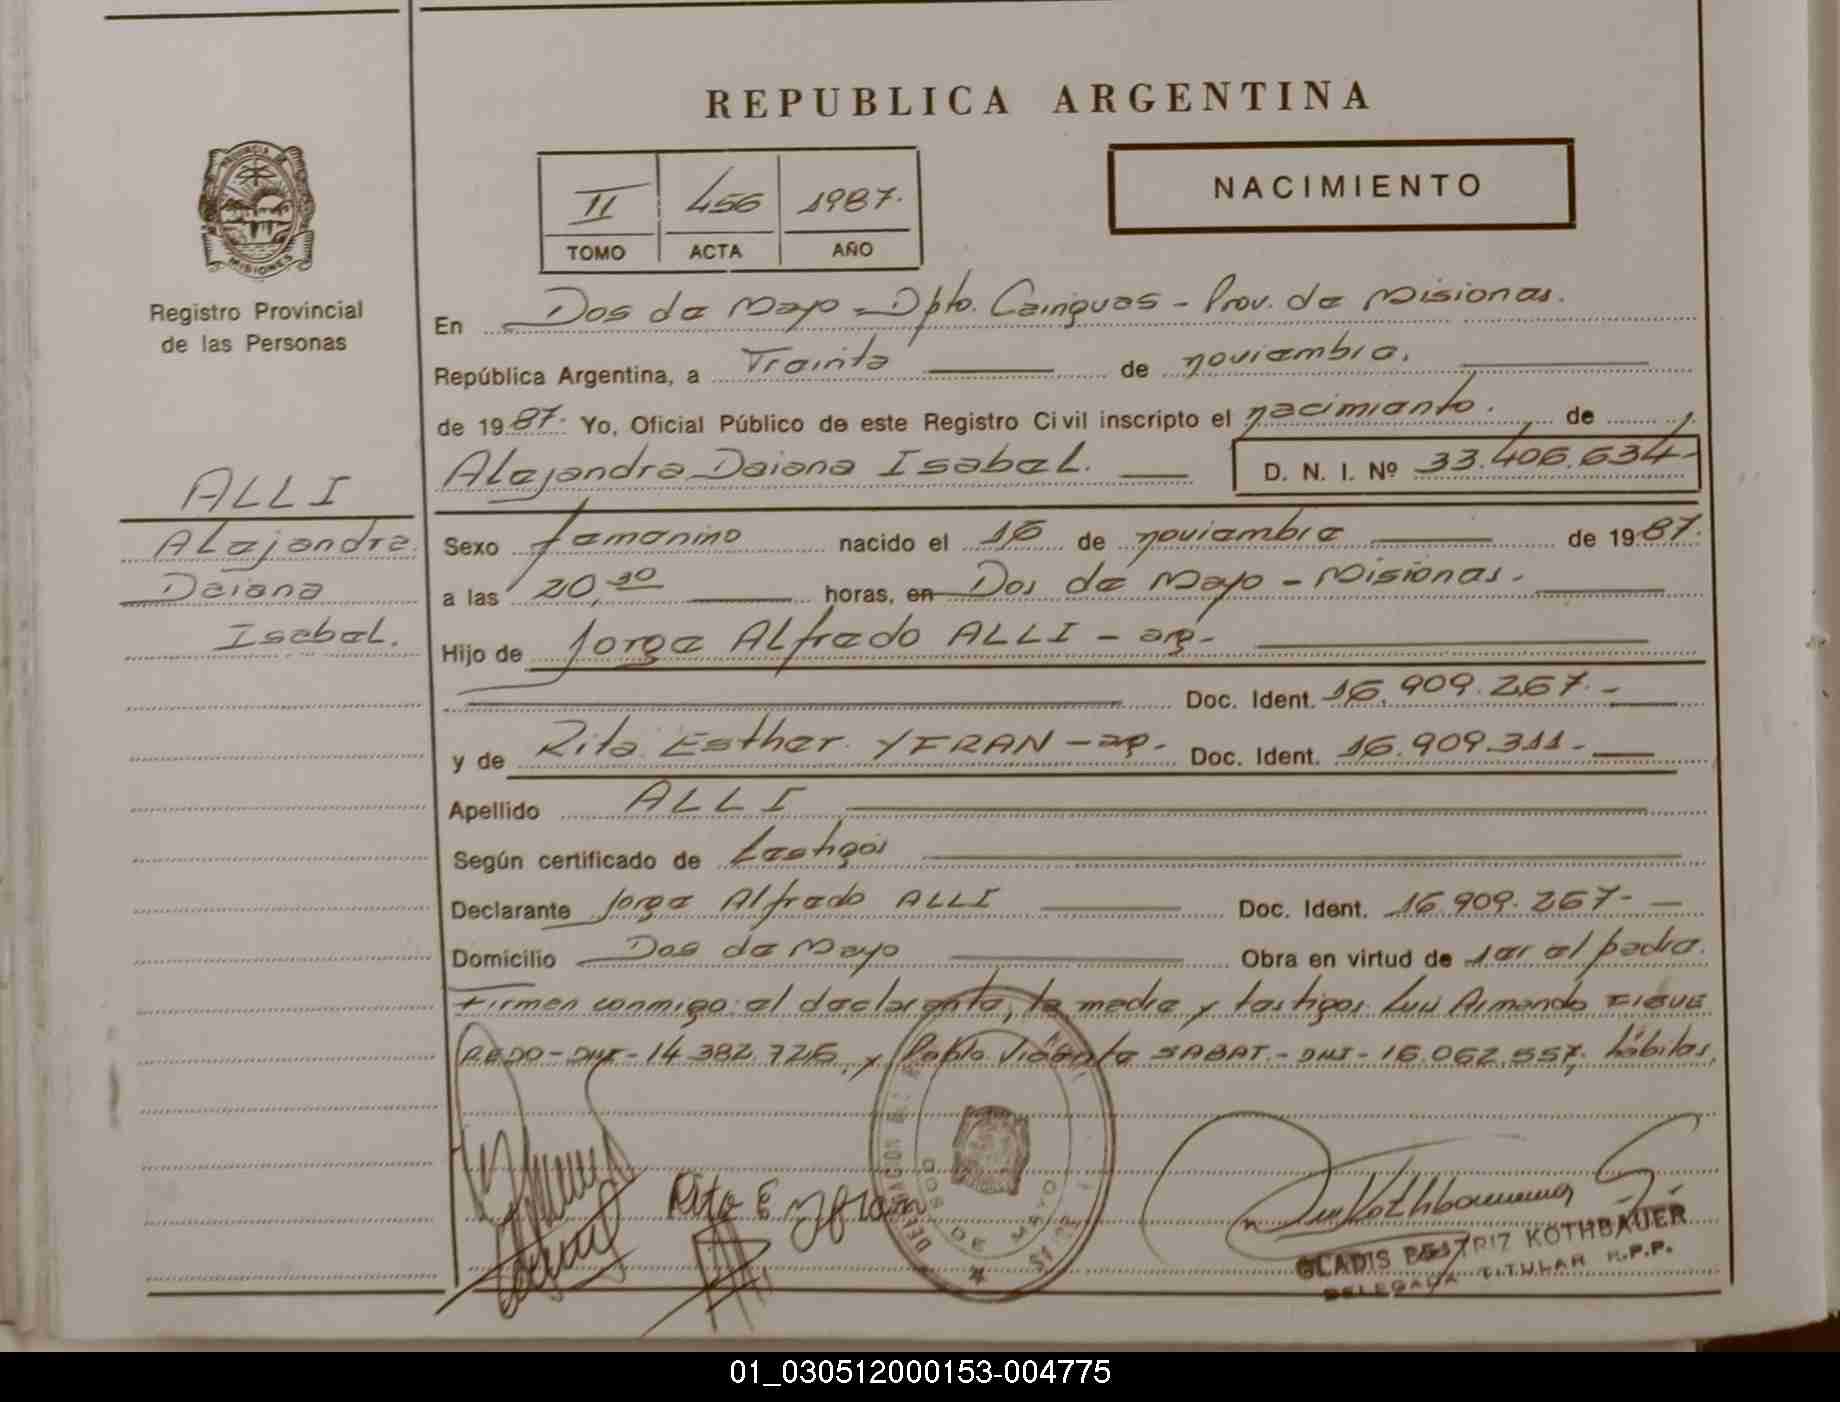 REPUBLICA ARGENTINA
II 456 1987.
TOMO ACTA AÑO
NACIMIENTO
PROVINCIA DE
MISIONES
Registro Provincial
de las Personas
En Dos de Mayo - Dpto. Cainguas - Prov. de Misiones.
República Argentina, a Treinta de noviembre.
de 1987. Yo, Oficial Público de este Registro Civil inscripto el nacimiento. de
Alejandra Daiana Isabel. D. N. I. Nº 33.406.634.-
ALLI
Alejandra
Daiana
Isabel.
Sexo femenino nacido el 16 de noviembre de 1987.
a las 20,30 horas, en Dos de Mayo - Misiones.
Hijo de Jorge Alfredo ALLI - arg-
Doc. Ident. 16.909.267.-
y de Rita Esther YFRAN - arg- Doc. Ident. 16.909.311.-
Apellido ALLI
Según certificado de testigos
Declarante Jorge Alfredo ALLI Doc. Ident. 16.909.267-
Domicilio Dos de Mayo Obra en virtud de ser el padre.
Firman conmigo: el declarante, la madre y testigos: Luis Armando FIGUE
REDO - DNI - 14.382.726, y Pablo Vicente SABAT.- DNI - 16.062.557, hábiles,
Rita E Yfran
DOS DE MAYO
Kothbauer
GLADIS BEATRIZ KOTHBAUER
DELEGADA TITULAR R.P.P.
01_030512000153-004775